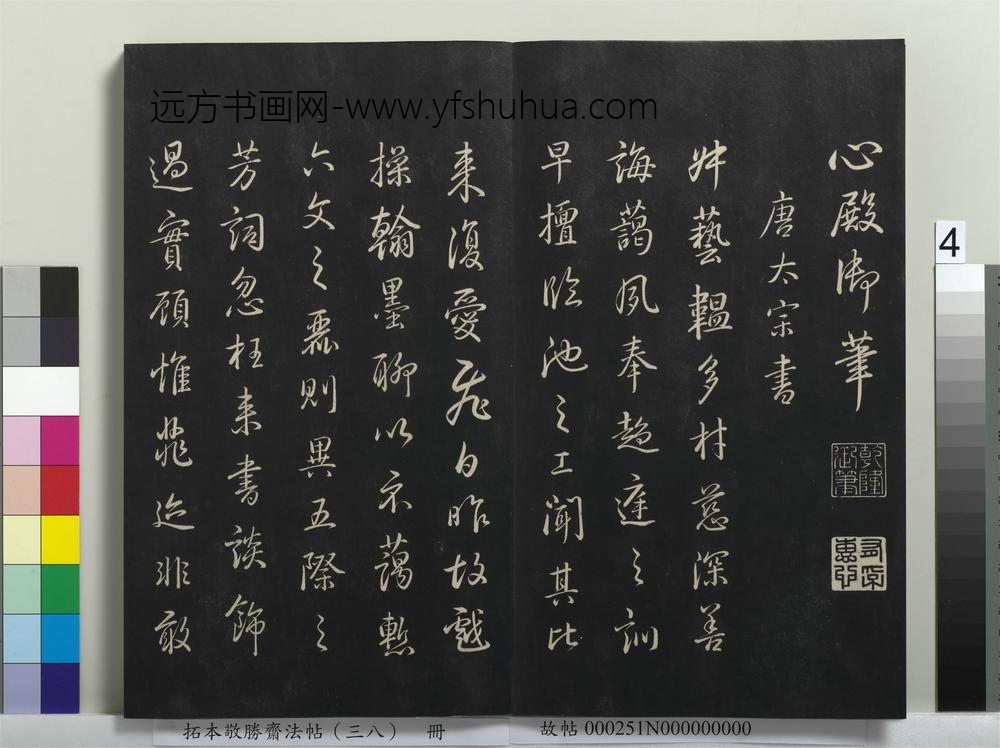 远方书画网-www.yfshuhua.com
心殿御筆
乾隆御筆
唐太宗書
艸藝韞多材慈深善
誨藹夙奉趍庭之訓
早擅臨池之工聞其比
来復愛飛白昨故戲
操翰墨聊以示藹慙
六文之麗則異五際之
芳詞忽枉来書談飾
過實顧惟菲迹非敢
4
拓本敬勝齋法帖（三八） 冊
故帖 000251N000000000